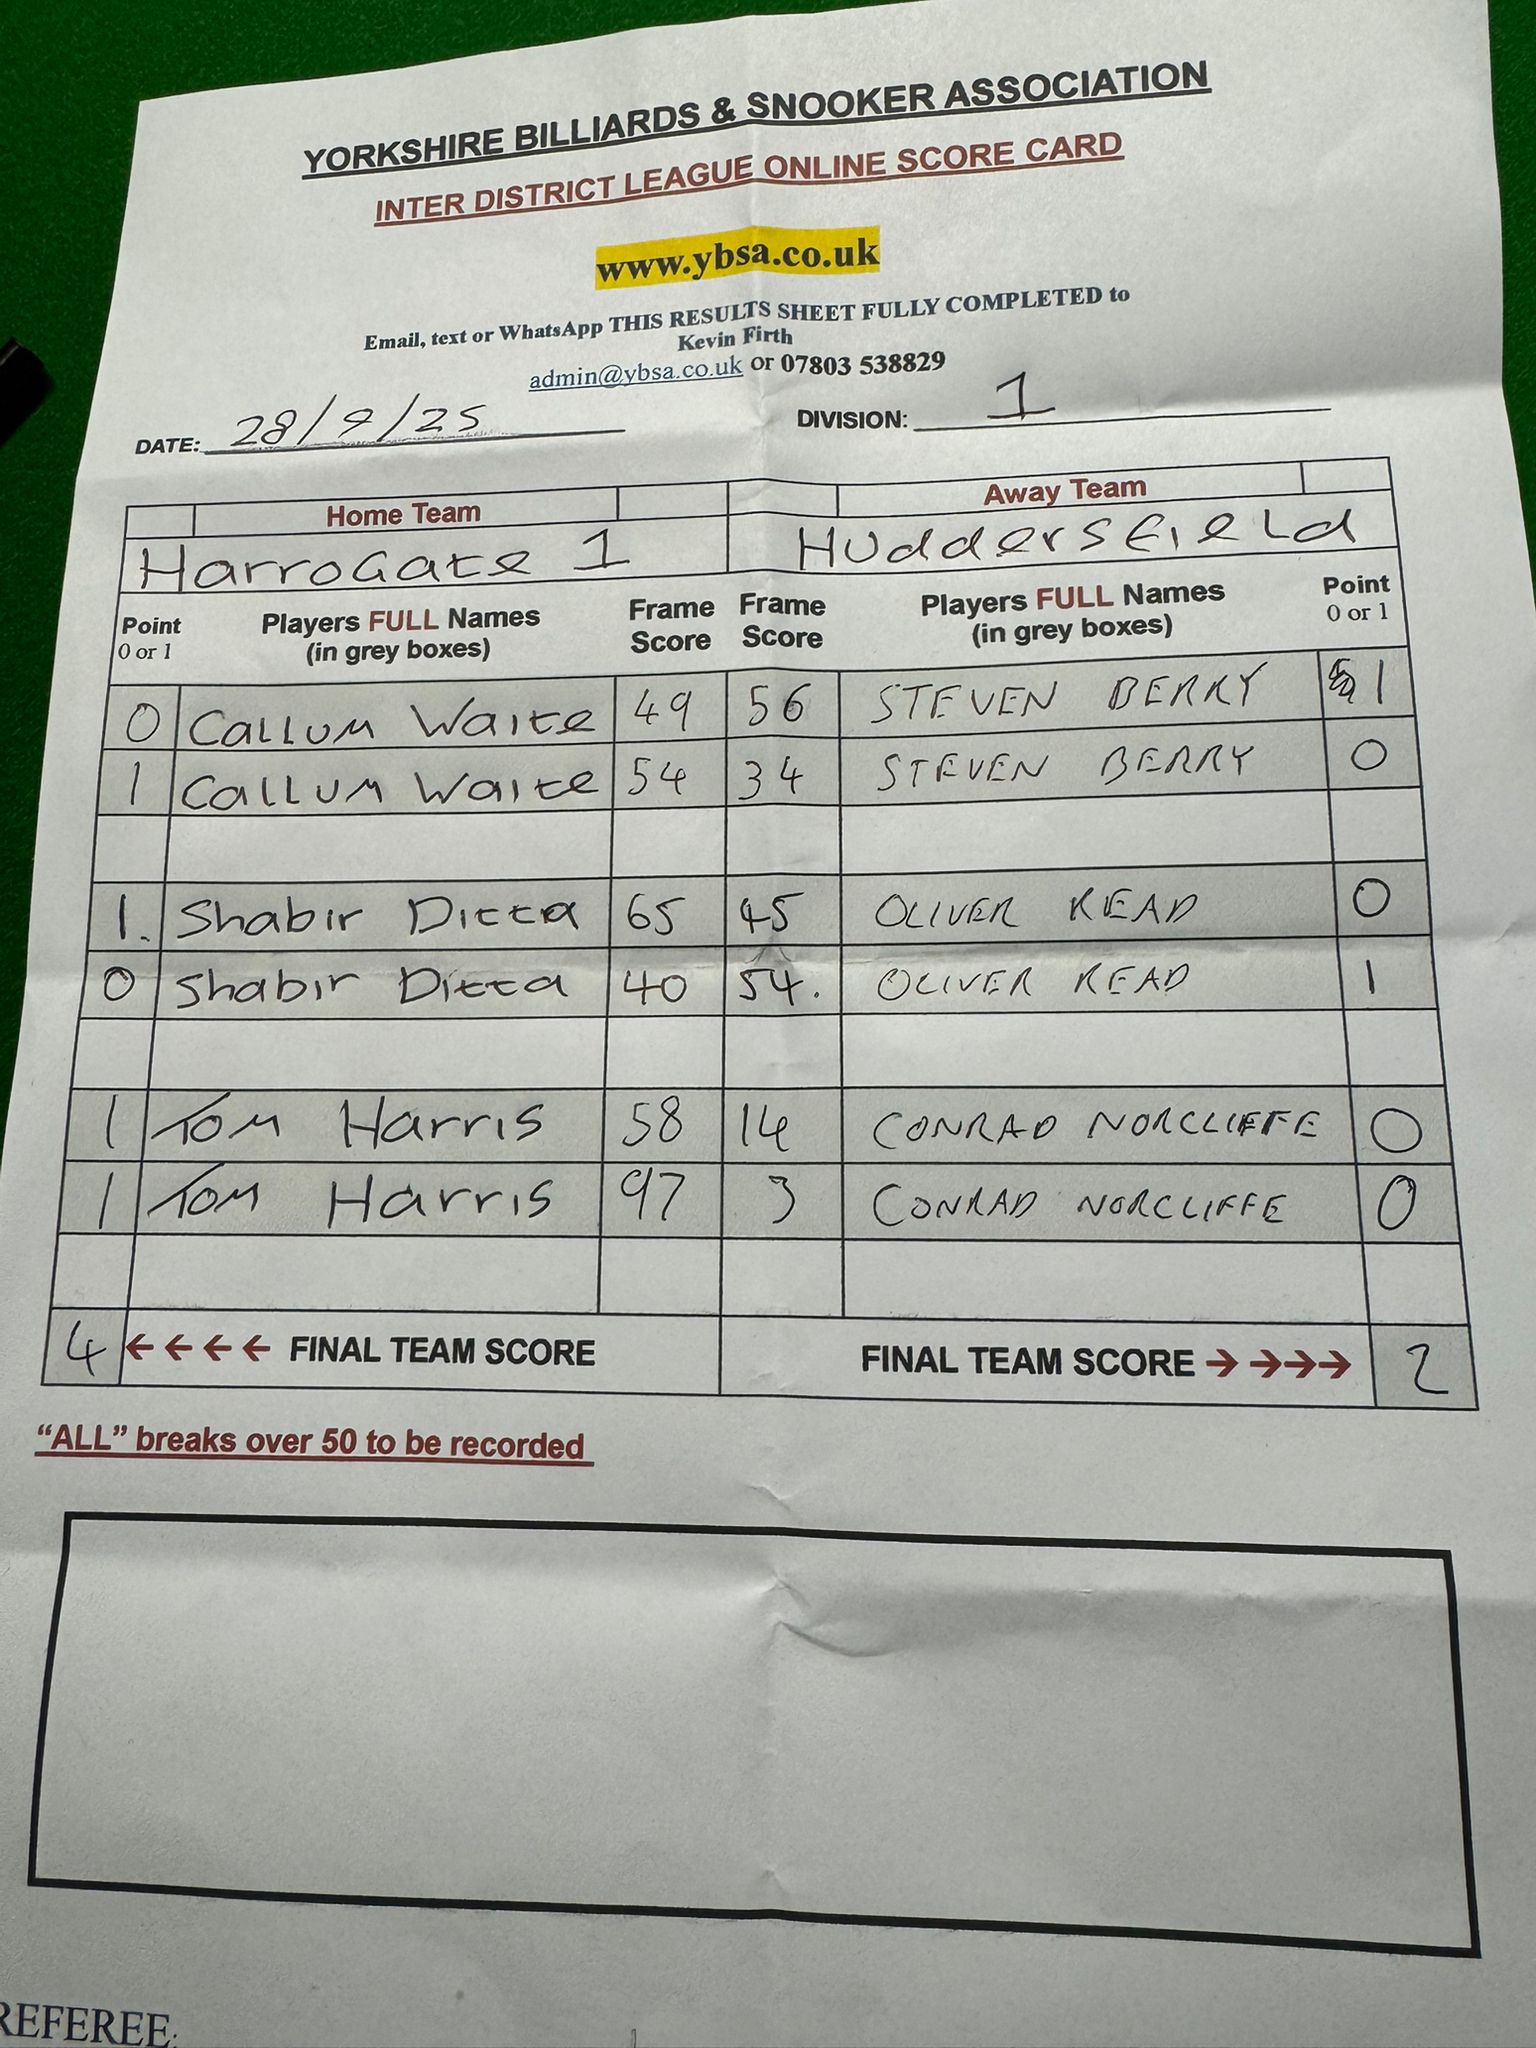 YORKSHIRE BILLIARDS & SNOOKER ASSOCIATION
INTER DISTRICT LEAGUE ONLINE SCORE CARD
www.ybsa.co.uk
Email, text or WhatsApp THIS RESULTS SHEET FULLY COMPLETED to
Kevin Firth
admin@ybsa.co.uk or 07803 538829
DATE: 28/9/25 DIVISION: 1
Home Team Away Team
HarroGate 1 HUddersfieLd
Point 0 or 1 Players FULL Names (in grey boxes) Frame Score Frame Score Players FULL Names (in grey boxes) Point 0 or 1
0 CALLUM Waite 49 56 STEVEN BERRY 1
1 CALLUM Waite 54 34 STEVEN BERRY 0
1. Shabir Ditta 65 45 OLIVER READ 0
0 Shabir Ditta 40 54. OLIVER READ 1
1 Tom Harris 58 14 CONRAD NORCLIFFE 0
1 Tom Harris 97 3 CONRAD NORCLIFFE 0
4 ←←←← FINAL TEAM SCORE FINAL TEAM SCORE →→→→ 2
“ALL” breaks over 50 to be recorded
REFEREE: